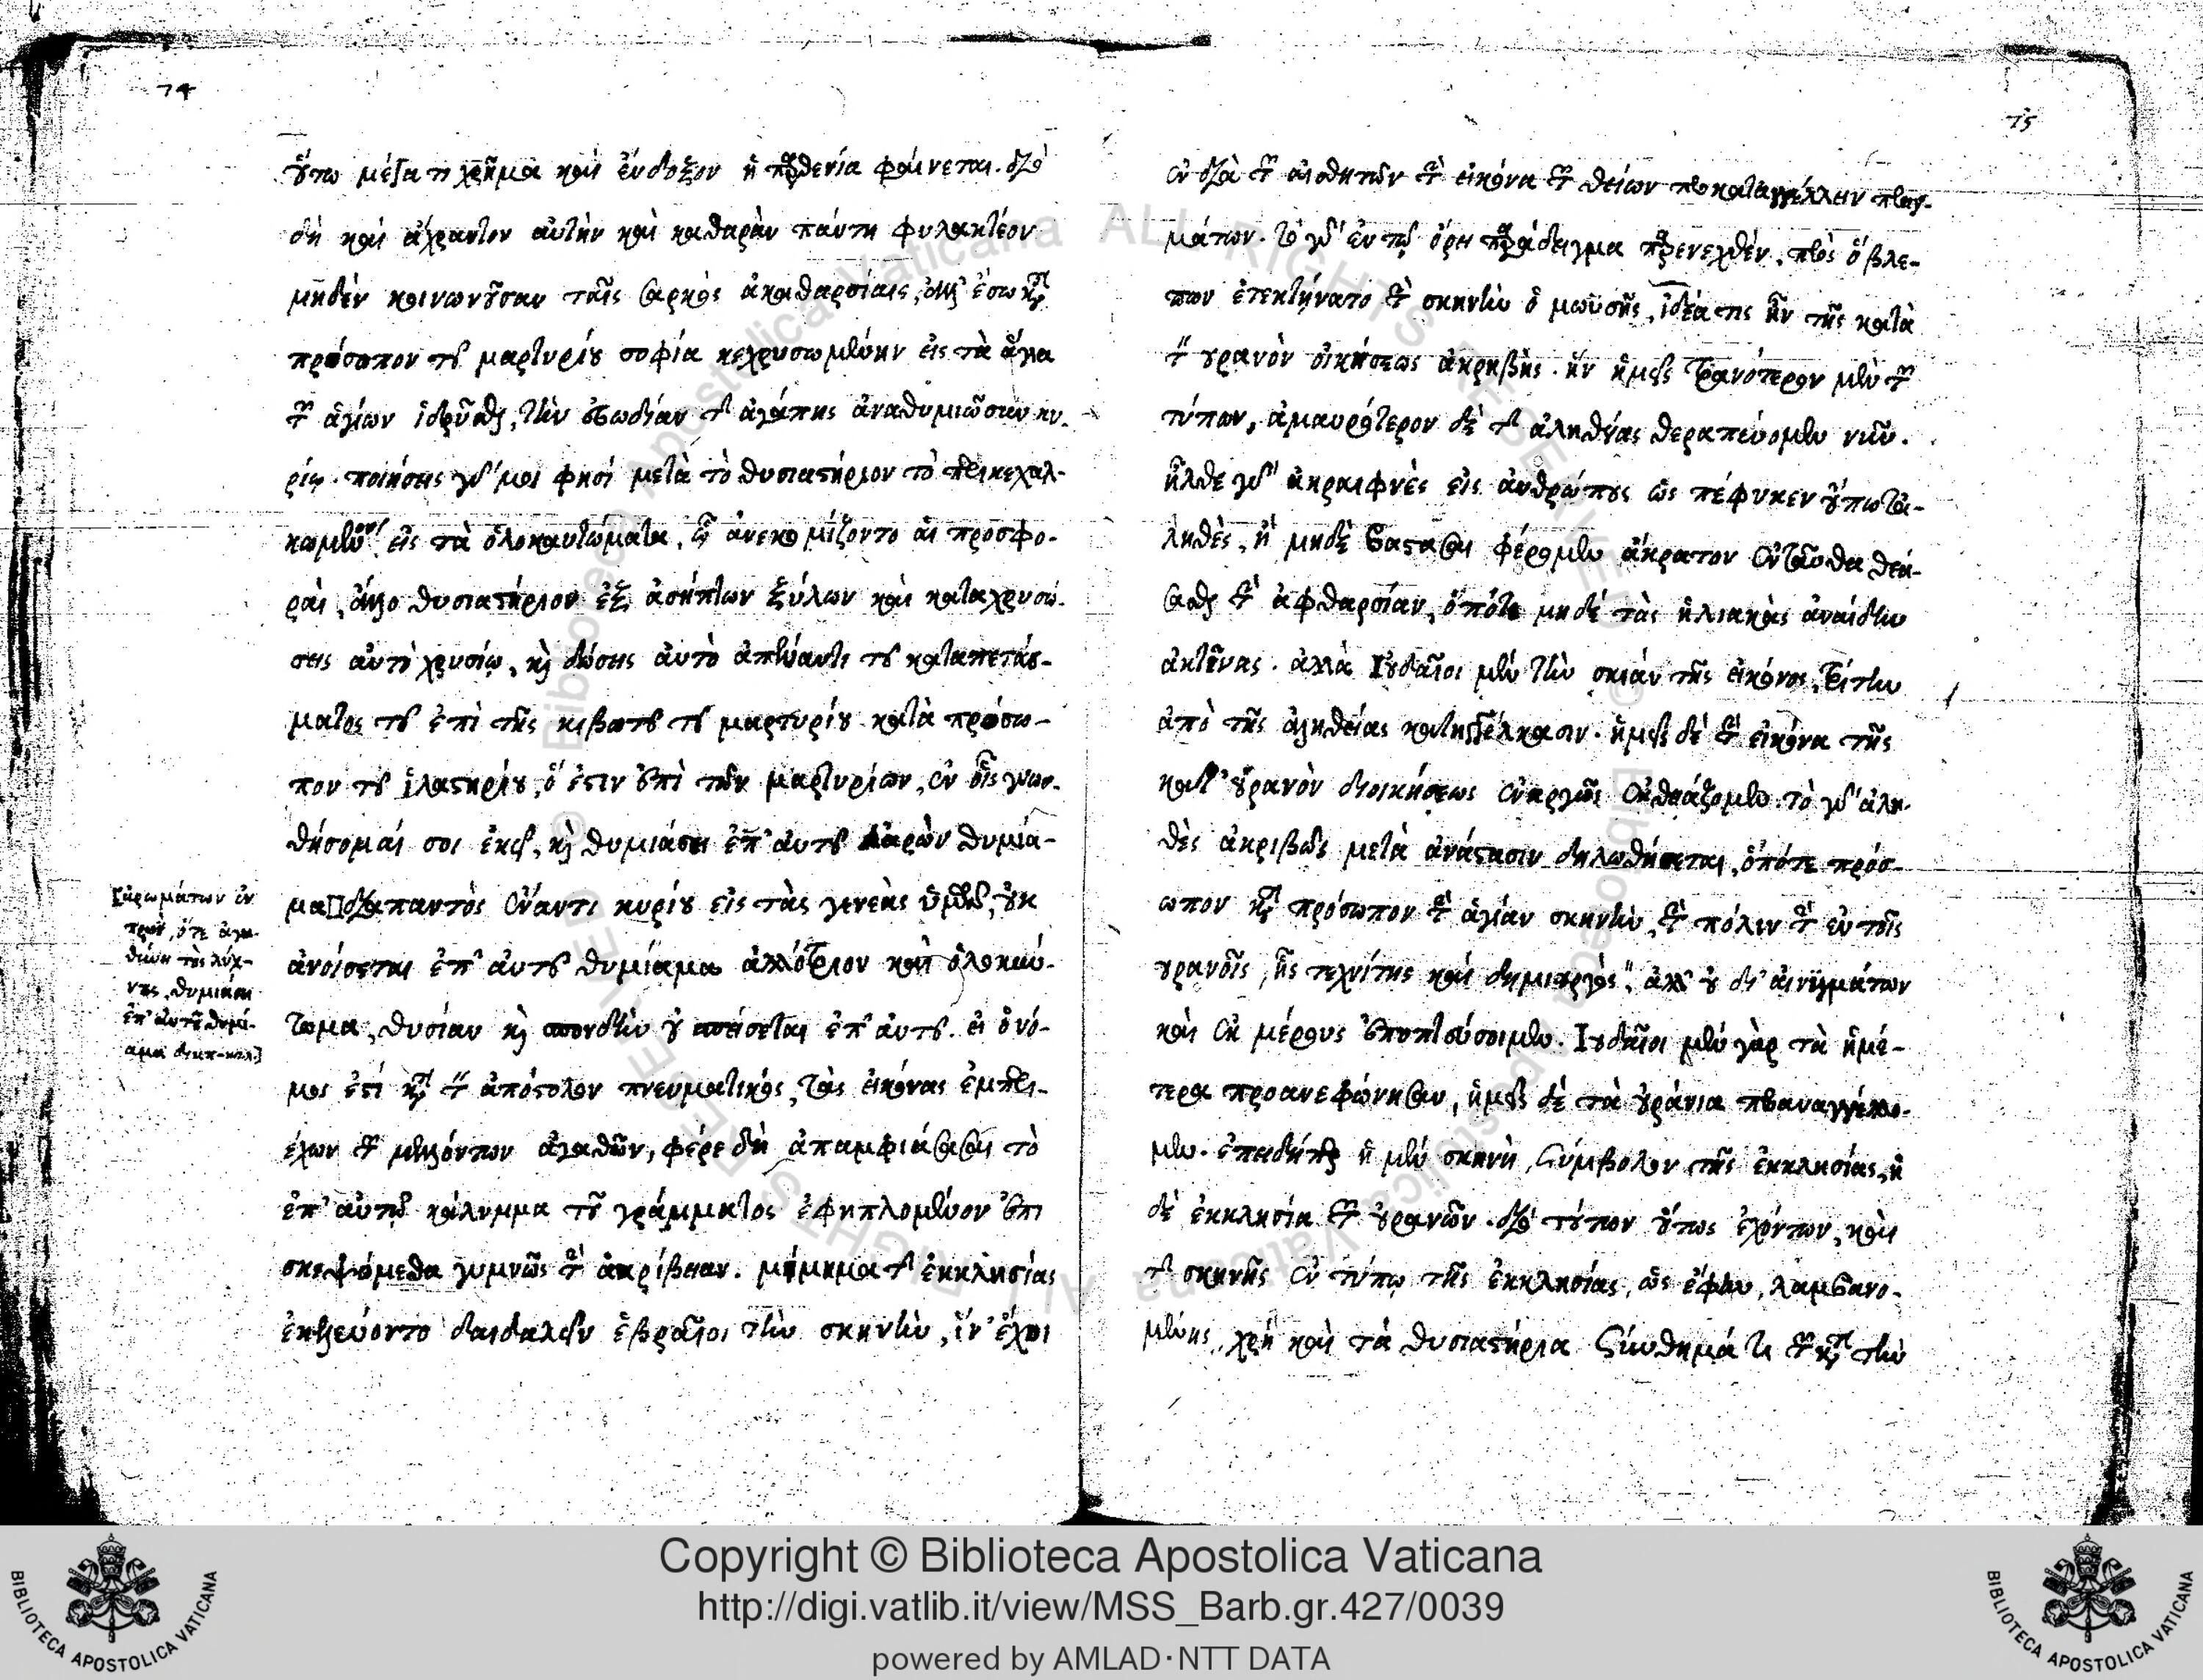 74
οὕτω μέγα τι χρῆμα καὶ ἔνδοξον ἡ παρθενία φαίνεται. διὸ
δὴ καὶ ἄχραντον αὐτὴν καὶ καθαρὰν πάντη φυλακτέον
μηδὲν κοινωνοῦσαν ταῖς σαρκὸς ἀκαθαρσίαις, ἀλλ' ἔσω κατὰ
πρόσωπον τοῦ μαρτυρίου σοφία κεχρυσωμένην εἰς τὰ ἅγια
τῶν ἁγίων ἱδρῦσθαι, τὴν εὐωδίαν τῆς ἀγάπης ἀναθυμιῶσαν κυ-
ρίῳ. ποιήσεις γάρ μοι φησὶ μετὰ τὸ θυσιαστήριον τὸ περικεχαλ-
κωμένον εἰς τὰ ὁλοκαυτώματα, ἀνεκομίζοντο αἱ προσφο-
ραὶ, ἄλλο θυσιαστήριον ἐξ ἀσήπτων ξύλων καὶ καταχρυσώ-
σεις αὐτὸ χρυσίῳ, καὶ δώσεις αὐτὸ ἀπέναντι τοῦ καταπετάσ-
ματος τοῦ ἐπὶ τῆς κιβωτοῦ τοῦ μαρτυρίου κατὰ πρόσω-
πον τοῦ ἱλαστηρίου, ὅ ἐστιν ἐπὶ τῶν μαρτυρίων, ἐν οἷς γνωσ-
θήσομαί σοι ἐκεῖ, καὶ θυμιάσει ἐπ' αὐτοῦ Ἀαρὼν θυμία-
μα διαπαντὸς ἔναντι κυρίου εἰς τὰς γενεὰς ὑμῶν, οὐκ
ἀνοίσεται ἐπ' αὐτοῦ θυμίαμα ἀλλότριον καὶ ὁλοκαύ-
τωμα, θυσίαν καὶ σπονδὴν οὐ σπείσεται ἐπ' αὐτοῦ. εἰ ὁ νό-
μος ἐστὶ κατὰ τὸν ἀπόστολον πνευματικὸς, τὰς εἰκόνας ἐμπερι-
έχων τῶν μελλόντων ἀγαθῶν, φέρε δὴ ἀπαμφιάσασαι τὸ
ἐπ' αὐτῷ κάλυμμα τοῦ γράμματος ἐφηπλομένον ἐπι
σκεψόμεθα γυμνῶς τὴν ἀκρίβειαν. μίμημα τῆς ἐκκλησίας
ἐκελεύοντο δαιδαλεῖν ἑβραῖοι τὴν σκηνὴν, ἵν' ἔχοι
[ἀρωμάτων ἐν
πρωῒ, ὅτε ἀγα-
θύνῃ τοὺς λύχ-
νους, θυμιάσει
ἐπ' αὐτοῦ θυμί-
αμα
75
ἐν διὰ τῶν αἰσθητῶν τὴν εἰκόνα τῶν θείων προκαταγγέλλειν πραγ-
μάτων. τὸ γὰρ ἐν τῷ ὄρει παράδειγμα παρενεχθὲν, πρὸς ὃ βλέ-
πων ἐτεκτήνατο τὴν σκηνὴν ὁ μωϋσῆς, ἰδέα τις ἦν τῆς κατὰ
τὸν οὐρανὸν οἰκήσεως ἀκριβής. ἣν ἡμεῖς τρανότερον μὲν τῶν
τύπων, ἀμαυρότερον δὲ τῆς ἀληθείας θεραπεύομεν νῦν.
ἦλθε γὰρ ἀκραιφνὲς εἰς ἀνθρώπους ὡς πέφυκεν οὔπω τἀ-
ληθὲς, οἳ μηδὲ βαστάσαι φέρομεν ἄκρατον ἐνταῦθα θεά-
σασθαι τὴν ἀφθαρσίαν, ὁπότε μηδὲ τὰς ἡλιακὰς ἀναίδην
ἀκτῖνας. ἀλλὰ Ἰουδαῖοι μὲν τὴν σκιὰν τῆς εἰκόνος, τρίτην
ἀπὸ τῆς ἀληθείας κατηγγέλκασιν. ἡμεῖς δὲ τὴν εἰκόνα τῆς
κατ' οὐρανὸν διοικήσεως ἐναργῶς ἐκθειάζομεν. τὸ γὰρ ἀλη-
θὲς ἀκριβῶς μετὰ ἀνάστασιν δηλωθήσεται, ὁπότε πρόσ-
ωπον κατὰ πρόσωπον τὴν ἁγίαν σκηνὴν, τὴν πόλιν τὴν ἐν τοῖς
οὐρανοῖς, ἧς τεχνίτης καὶ δημιουργὸς", ἀλλ' οὐ δι' αἰνιγμάτων
καὶ ἐκ μέρους ἐποπτεύσοιμεν. Ἰουδαῖοι μὲν γὰρ τὰ ἡμέ-
τερα προανεφώνησαν, ἡμεῖς δὲ τὰ οὐράνια προαναγγέλλο-
μεν. ἐπειδήπερ ἡ μὲν σκηνὴ, σύμβολον τῆς ἐκκλησίας, ἡ
δὲ ἐκκλησία τῶν οὐρανῶν. διὸ τούτων οὕτως ἐχόντων, καὶ
τῆς σκηνῆς ἐν τύπῳ τῆς ἐκκλησίας, ὡς ἔφην, λαμβανο-
μένης, χρὴ καὶ τὰ θυσιαστήρια σύνθημά τι τῶν κατὰ τὴν
Copyright © Biblioteca Apostolica Vaticana
http://digi.vatlib.it/view/MSS_Barb.gr.427/0039
powered by AMLAD·NTT DATA
BIBLIOTECA APOSTOLICA VATICANA
BIBLIOTECA APOSTOLICA VATICANA